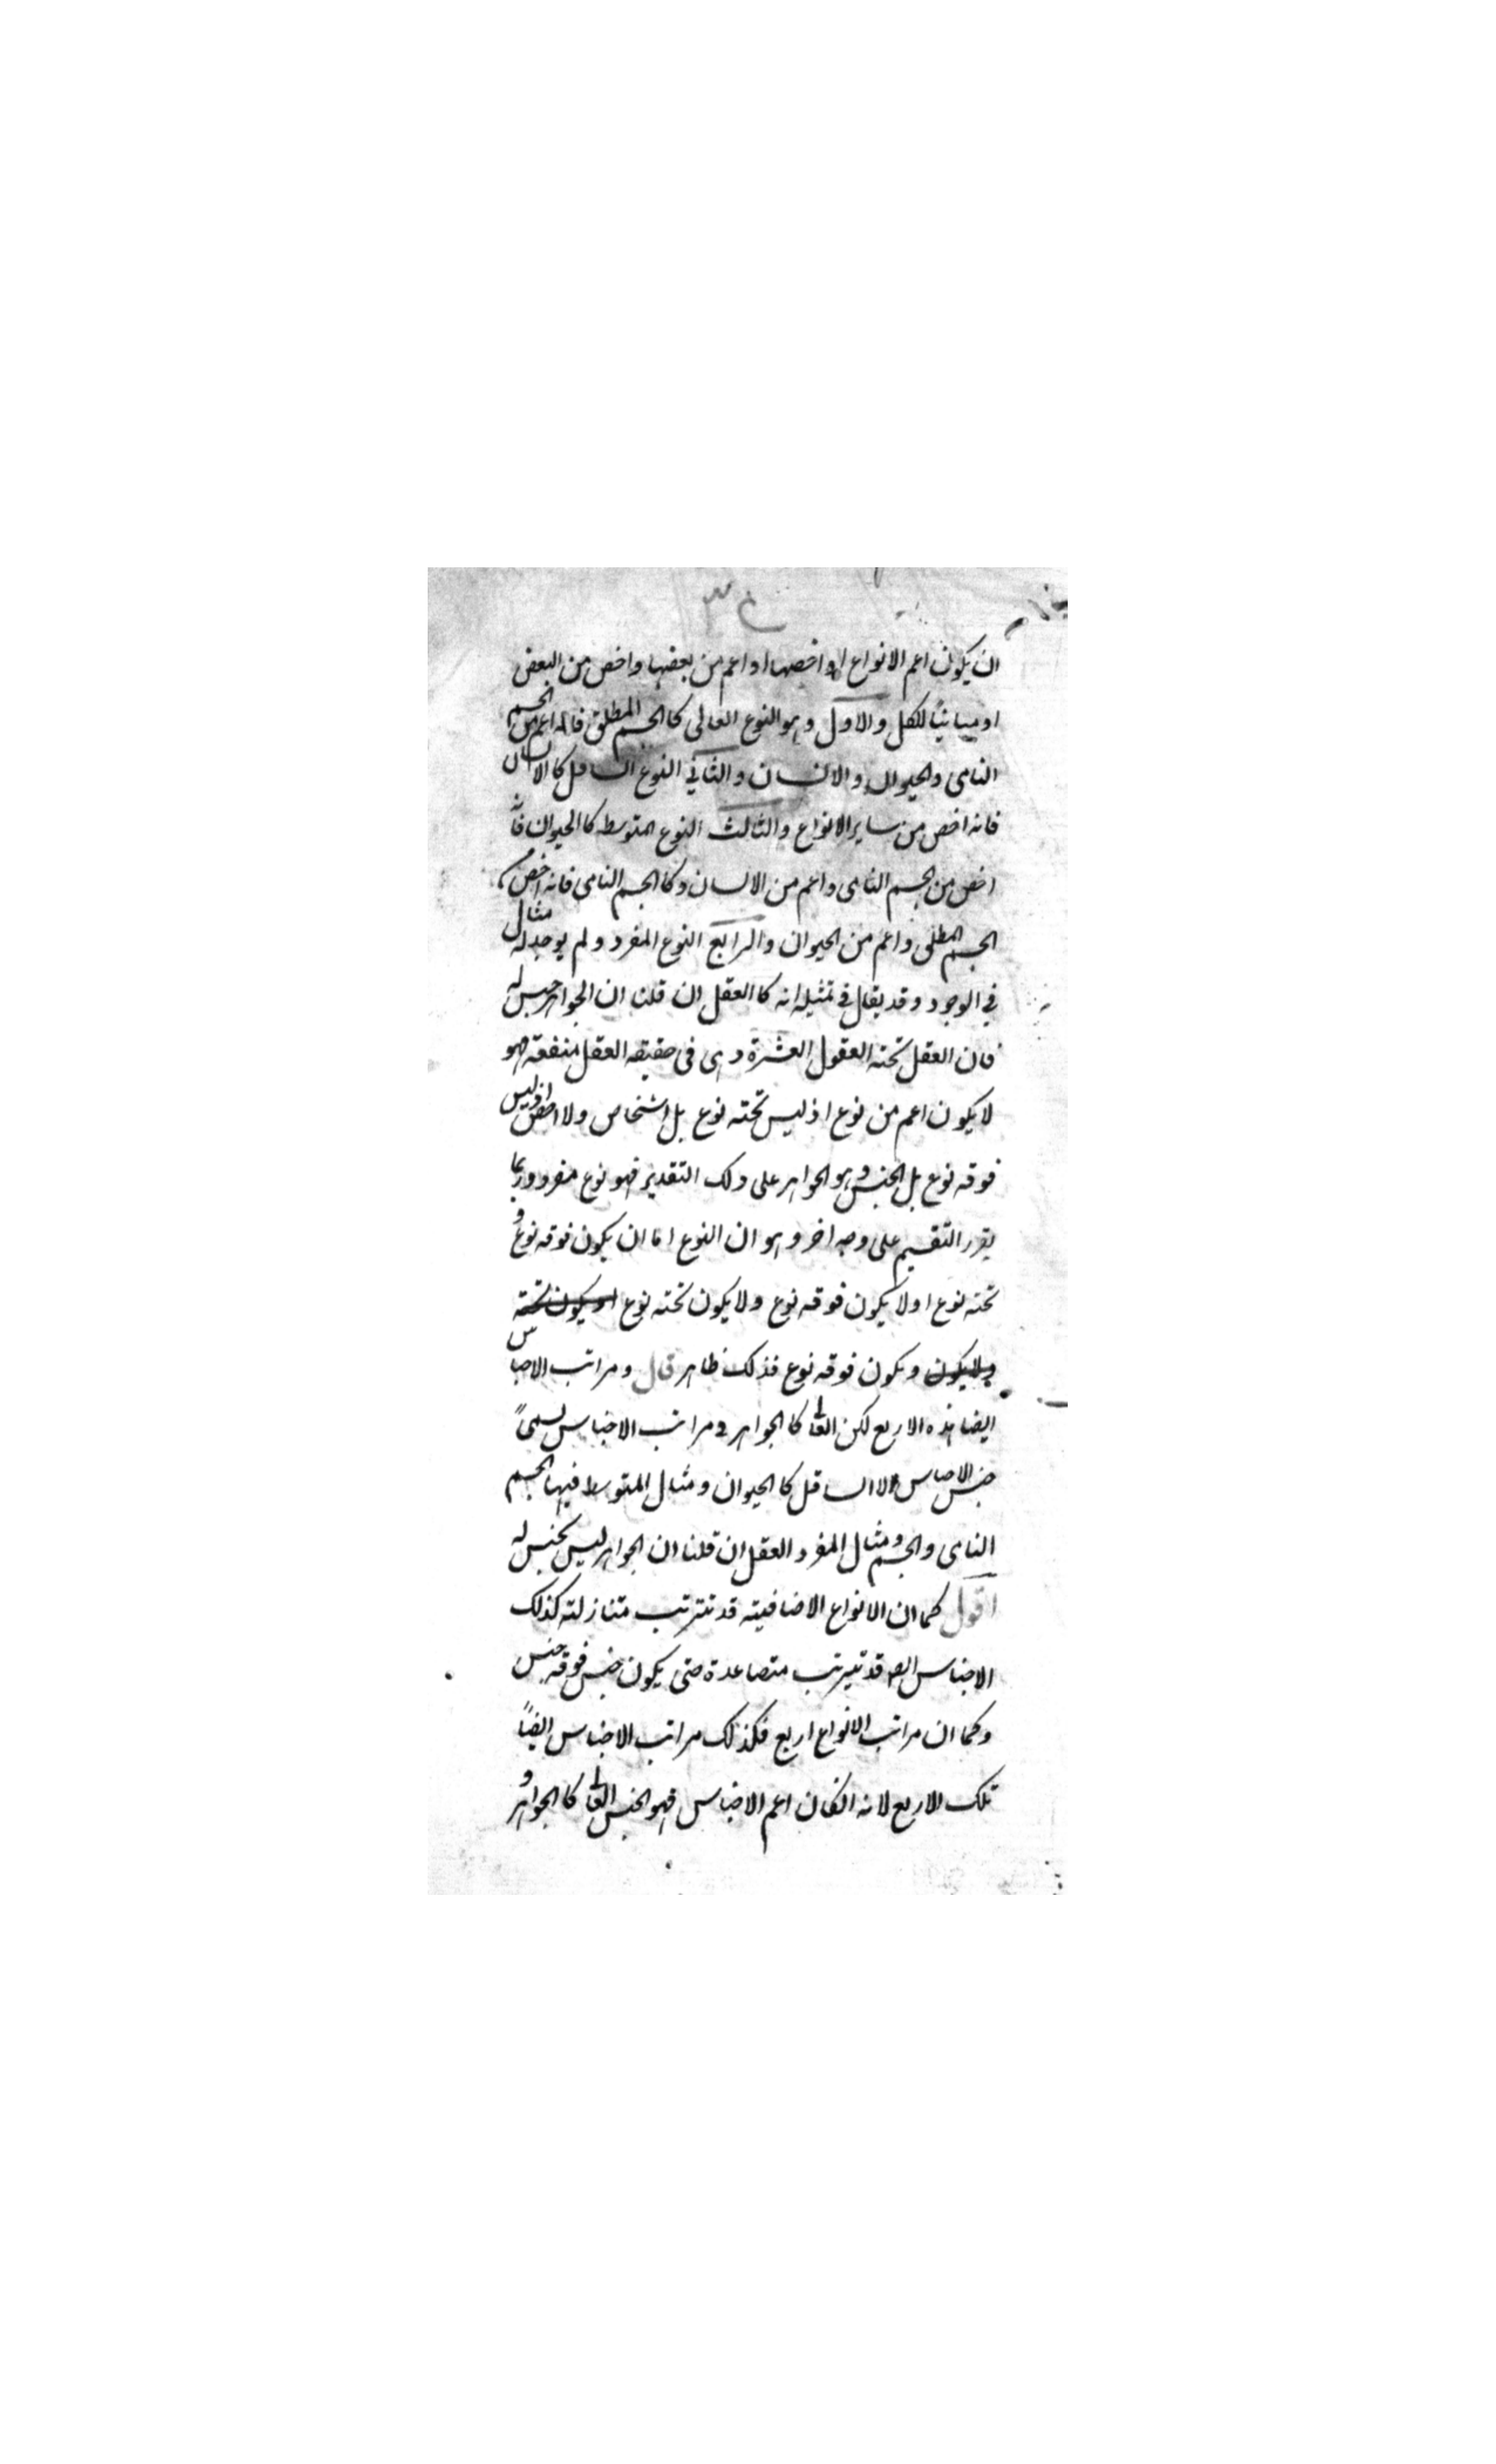 ان يكون اعم الانواع او اخصها او اعم من بعضها واخص من البعض
او مبيانيًا للكل والاول وهو النوع العالى كالجسم المطلق فانه اعم من الجسم
النامى والحيوان والانسان والثانى النوع السافل كالانسان
فانه اخص من ساير الانواع والثالث النوع المتوسط كالحيوان فانه
اخص من الجسم النامى واعم من الانسان وكالجسم النامى فانه اخص من
الجسم المطلق واعم من الحيوان والرابع النوع المفرد ولم يوجد له مثال
فى الوجود وقد يقال فى تمثيله انه كالعقل ان قلنا ان الجواهر جنس له
فان العقل تحته العقول العشرة وهى فى حقيقه العقل متفقه فهو
لا يكون اعم من نوع اذ ليس تحته نوع بل اشخاص ولا اخص اذ ليس
فوقه نوع بل الجنس وهو الجواهر على ذلك التقدير فهو نوع مفرد وربما
يقرر التقسيم على وجه اخر وهو ان النوع اما ان يكون فوقه نوع و
تحته نوع اولا يكون فوقه نوع ولا يكون تحته نوع او يكون تحته
ولا يكون ويكون فوقه نوع فذلك ظاهر قال ومراتب الاجناس
ايضا هذه الاربع لكن العالى كالجواهر فى مراتب الاجناس يسمىً
جنس الاجناس لا السافل كالحيوان ومثال المتوسط فيها الجسم
النامى والجسم ومثال المفرد العقل ان قلنا ان الجواهر ليس بجنس له
اقول كما ان الانواع الاضافيته قد تترتب متنازلته كذلك
الاجناس ايضا قد تترتب متصاعدة حتى يكون جنس فوقه جنس
وكما ان مراتب الانواع اربع فكذلك مراتب الاجناس ايضاً
تلك الاربع لانه انكان اعم الاجناس فهو الجنس العالى كالجواهر و